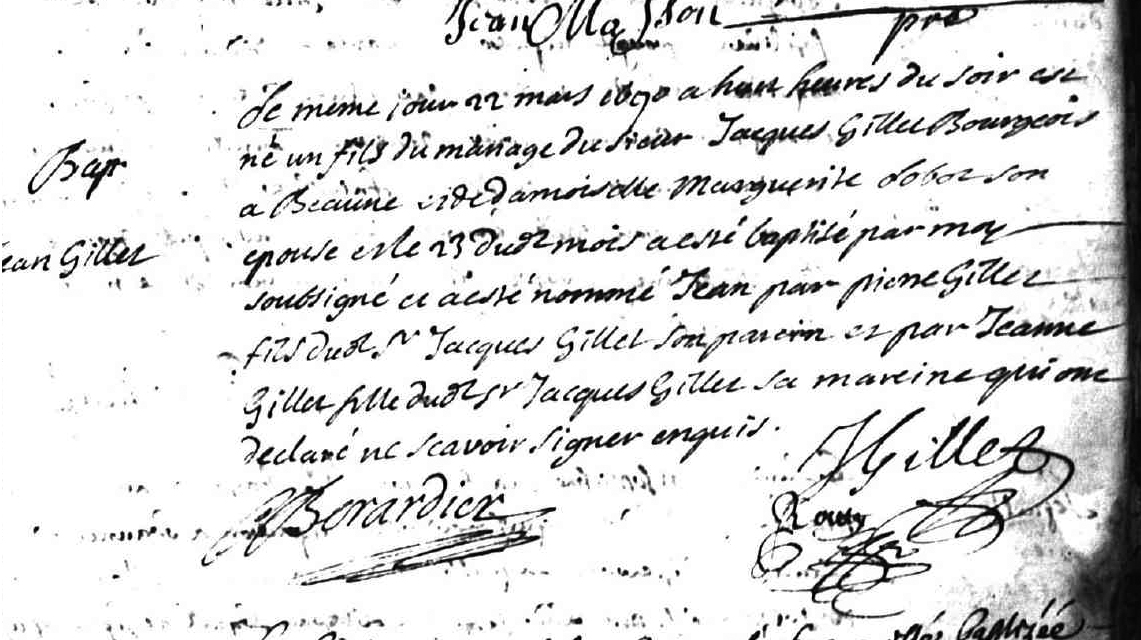 Jean Masson pre
Bap
Jean Gillet
Le meme jour 22 mars 1690 a huit heures du soir est
né un fils du mariage du sieur Jacques Gillet Bourgeois
à Beaune et de Damoiselle Marguerite Lobot son
epouse et le 23 dudt mois a esté baptisé par moy
soubsigné et a esté nommé Jean par pierre Gillet
fils dudt Sr Jacques Gillet son parein et par Jeanne
Gillet fille dudt Sr Jacques Gillet sa mareine qui ont
declaré ne scavoir signer enquis.
JGillet
Berardier